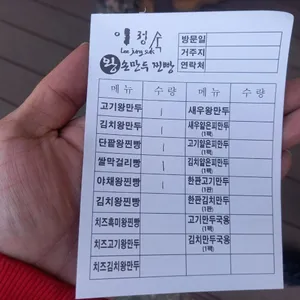 이정숙
Lee jung suk
왕손만두 찐빵
방문일
거주지
연락처
메뉴 수량 메뉴 수량
고기왕만두 | 새우왕만두
김치왕만두 | 새우얇은피만두
(1팩)
단팥왕찐빵 고기얇은피만두
(1팩)
쌀막걸리빵 | 김치얇은피만두
(1팩)
야채왕찐빵 | 한판고기만두
(1판)
김치왕찐빵 한판김치만두
(1판)
치즈흑미왕찐빵 고기만두국용
(1팩)
치즈고기왕만두 김치만두국용
(1팩)
치즈김치왕만두